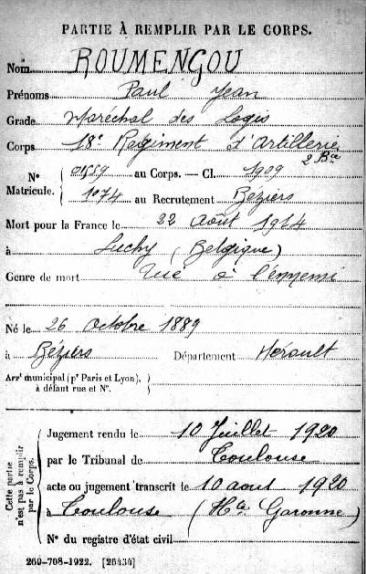 PARTIE À REMPLIR PAR LE CORPS.
Nom ROUMENGOU
Prénoms Paul Jean
Grade Maréchal des Logis
Corps 18e Régiment d'Artillerie
2 Bie
N° au Corps. — Cl. 1909
Matricule. 1074 au Recrutement Béziers
Mort pour la France le 22 Août 1914
à Luchy (Belgique)
Genre de mort Tué à l'ennemi
Né le 26 Octobre 1889
à Béziers Département Hérault
Arrt municipal (pr Paris et Lyon),
à défaut rue et N°.
Cette partie
n'est pas à remplir
par le Corps.
Jugement rendu le 10 Juillet 1920
par le Tribunal de Toulouse
acte ou jugement transcrit le 10 aout 1920
à Toulouse (Hte Garonne)
N° du registre d'état civil
260-708-1922. [26434]